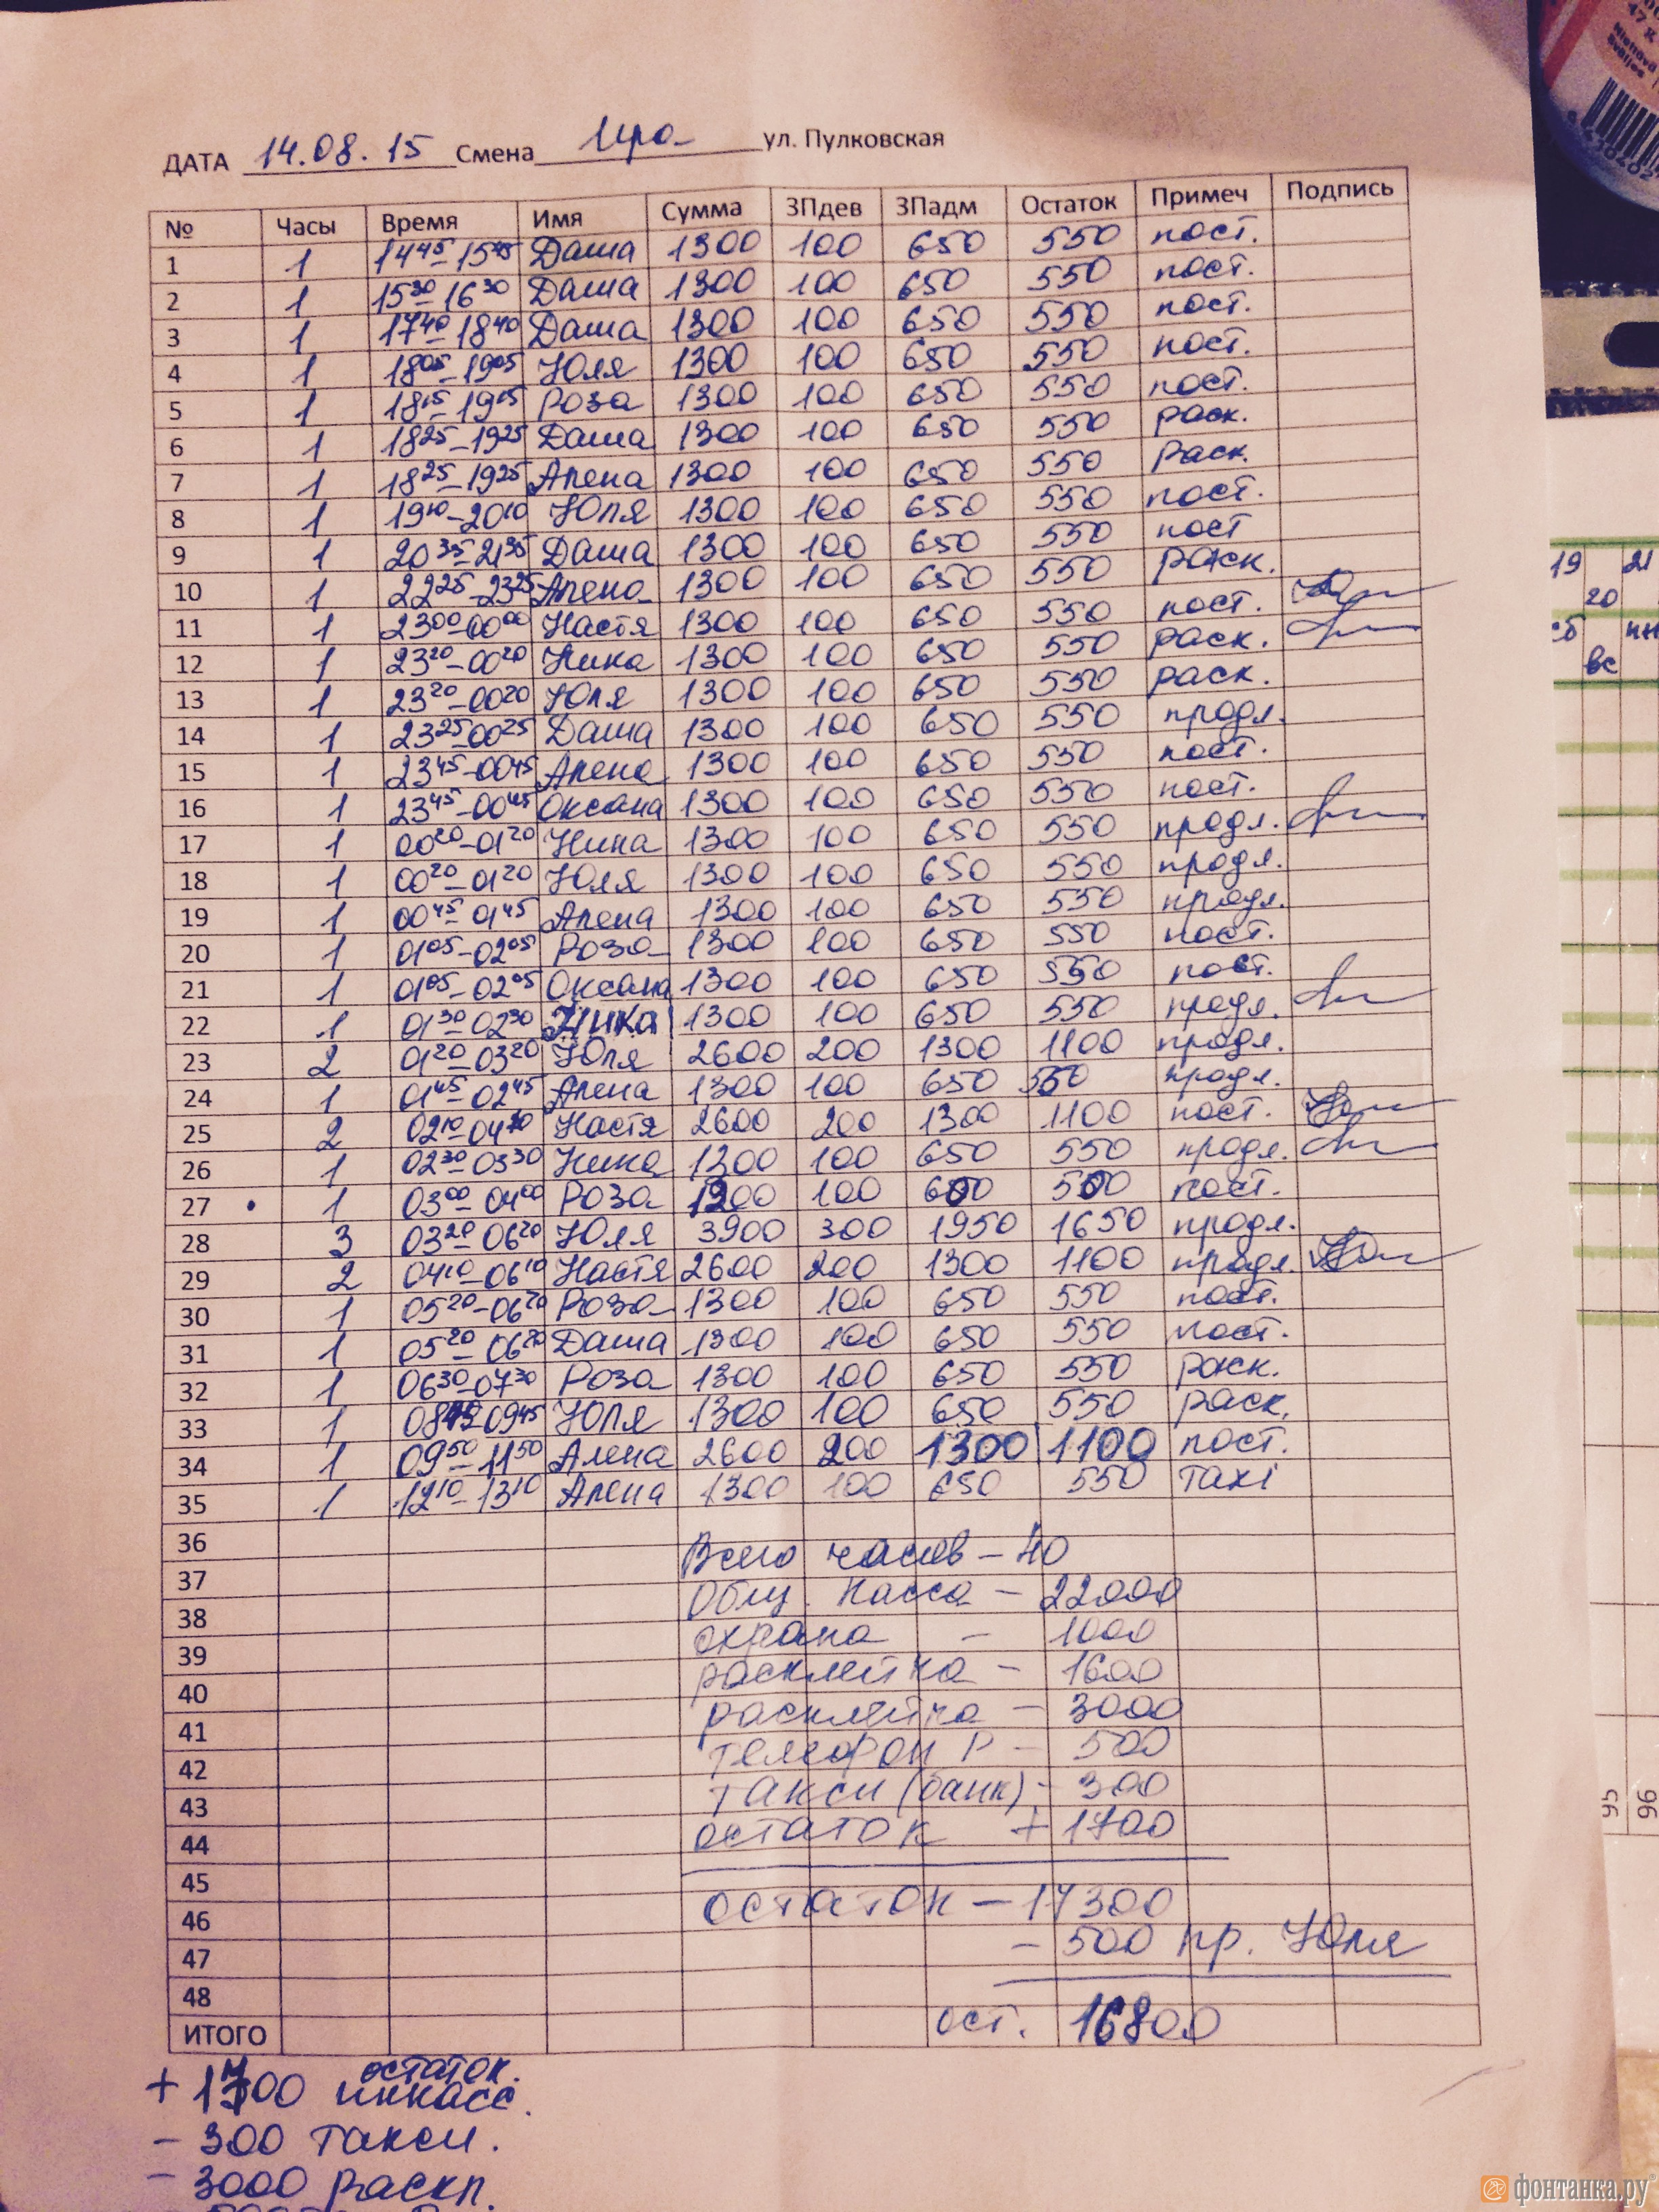 ДАТА 14.08.15 Смена Ира ул. Пулковская
№ Часы Время Имя Сумма ЗПдев ЗПадм Остаток Примеч Подпись
1 1 14 45 - 15 45 Даша 1300 100 650 550 пост.
2 1 15 30 - 16 30 Даша 1300 100 650 550 пост.
3 1 17 40 - 18 40 Даша 1300 100 650 550 пост.
4 1 18 05 - 19 05 Юля 1300 100 650 550 пост.
5 1 18 15 - 19 15 Роза 1300 100 650 550 пост.
6 1 18 25 - 19 25 Даша 1300 100 650 550 раск.
7 1 18 25 - 19 25 Алена 1300 100 650 550 Раск.
8 1 19 10 - 20 10 Юля 1300 100 650 550 пост.
9 1 20 35 - 21 35 Даша 1300 100 650 550 пост
10 1 22 25 - 23 25 Алена 1300 100 650 550 раск.
11 1 23 00 - 00 00 Настя 1300 100 650 550 пост.
12 1 23 20 - 00 20 Ника 1300 100 650 550 раск.
13 1 23 20 - 00 20 Юля 1300 100 650 550 раск.
14 1 23 25 - 00 25 Даша 1300 100 650 550 продл.
15 1 23 45 - 00 45 Алена 1300 100 650 550 пост.
16 1 23 45 - 00 45 Оксана 1300 100 650 550 пост.
17 1 00 20 - 01 20 Ника 1300 100 650 550 продл.
18 1 00 20 - 01 20 Юля 1300 100 650 550 продл.
19 1 00 45 - 01 45 Алена 1300 100 650 550 продл.
20 1 01 05 - 02 05 Роза 1300 100 650 550 пост.
21 1 01 05 - 02 05 Оксана 1300 100 650 550 пост.
22 1 01 30 - 02 30 Ника 1300 100 650 550 продл.
23 2 01 20 - 03 20 Юля 2600 200 1300 1100 продл.
24 1 01 45 - 02 45 Алена 1300 100 650 550 продл.
25 2 02 10 - 04 10 Настя 2600 200 1300 1100 пост.
26 1 02 30 - 03 30 Ника 1300 100 650 550 продл.
27 1 03 00 - 04 00 Роза 1200 100 600 500 пост.
28 3 03 20 - 06 20 Юля 3900 300 1950 1650 продл.
29 2 04 10 - 06 10 Настя 2600 200 1300 1100 продл.
30 1 05 20 - 06 20 Роза 1300 100 650 550 пост.
31 1 05 20 - 06 20 Даша 1300 100 650 550 пост.
32 1 06 30 - 07 30 Роза 1300 100 650 550 раск.
33 1 08 45 - 09 45 Юля 1300 100 650 550 раск.
34 1 09 50 - 11 50 Алена 2600 200 1300 1100 пост.
35 1 12 10 - 13 10 Алена 1300 100 650 550 Taxi
36 Всего часов - 40
37 Общ. касса - 22000
38 охрана - 1000
39 расклейка - 1600
40 расклейка - 3000
41 телефон Р - 500
42 такси (банк) - 300
43 остаток + 1700
44
45 остаток - 17300
46 - 500 пр. Юля
47
48 ост. 16800
ИТОГО
остаток.
+ 1700 инкасс.
- 300 такси.
- 3000 раскл.
19 20 21
сб вс пн
95 96
фонтанка.ру